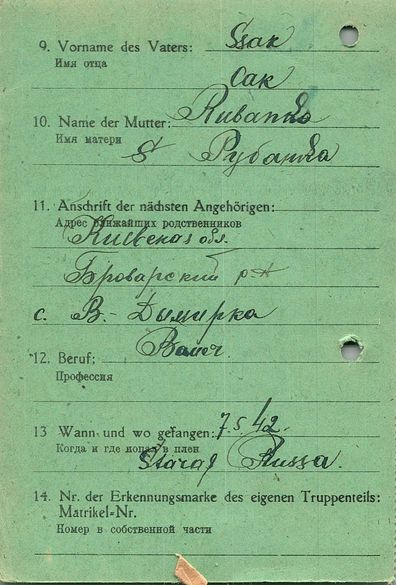 9. Vorname des Vaters: Isak
Имя отца
Сак
10. Name der Mutter: Rubanka
Имя матери
Рубанка
11. Anschrift der nächsten Angehörigen:
Адрес ближайших родственников
Киевская обл.
Броварский р-н
с. В.-Дымирка
12. Beruf: Bauer.
Профессия
13 Wann und wo gefangen: 7.5.42.
Когда и где попал в плен
Staraj Russa.
14. Nr. der Erkennungsmarke des eigenen Truppenteils:
Matrikel-Nr.
Номер в собственной части